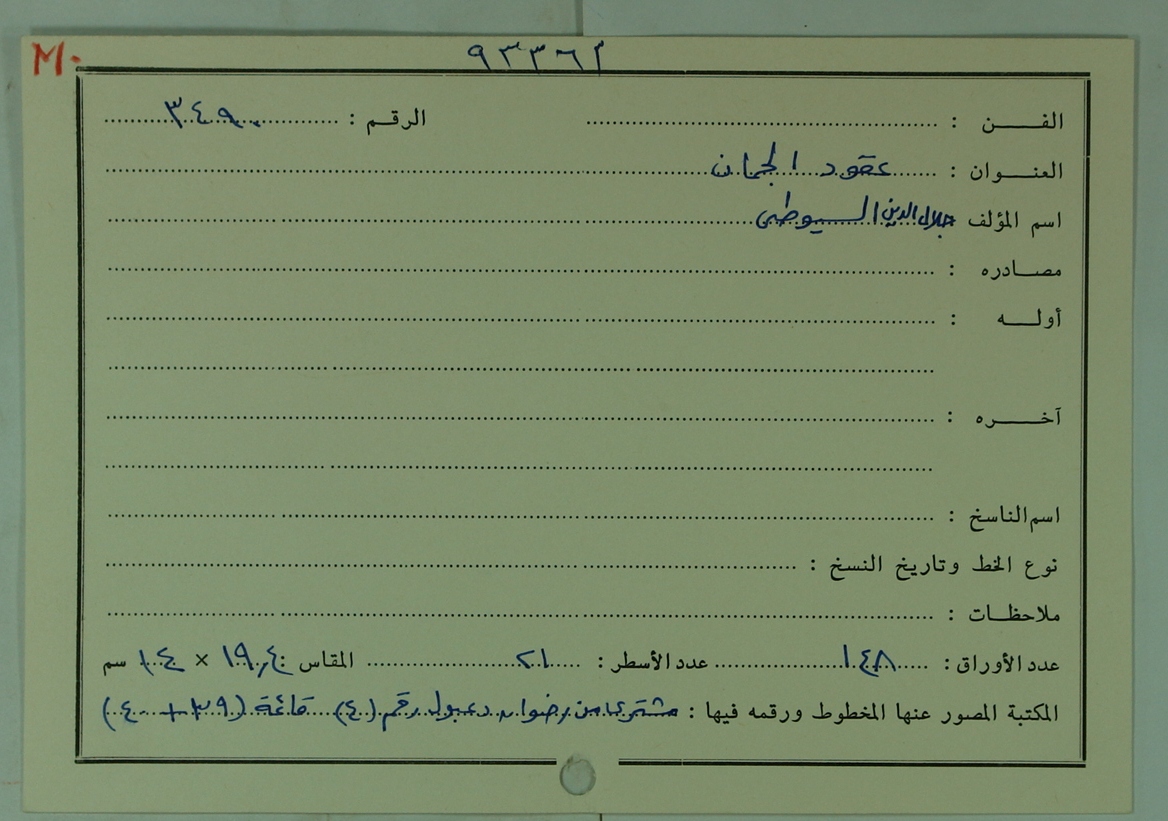 M.
٩٣٣٦٢
الفــــن : الرقـم : ٣٤٩٠
العنــوان : عقود الجمان
اسم المؤلف جلال الدين السيوطي
مصــادره :
أولــــه :
آخـــــره :
اسم الناسخ :
نوع الخط وتاريخ النسخ :
ملاحظــات :
عدد الأوراق : ١٤٨ عدد الأسطر : ٢١ المقاس : ١٩,٤ × ١٤ سم
المكتبة المصور عنها المخطوط ورقمه فيها : مشترى من رضوان دعبول رقم (٤) قائمة (٣٩ + ٤٠)